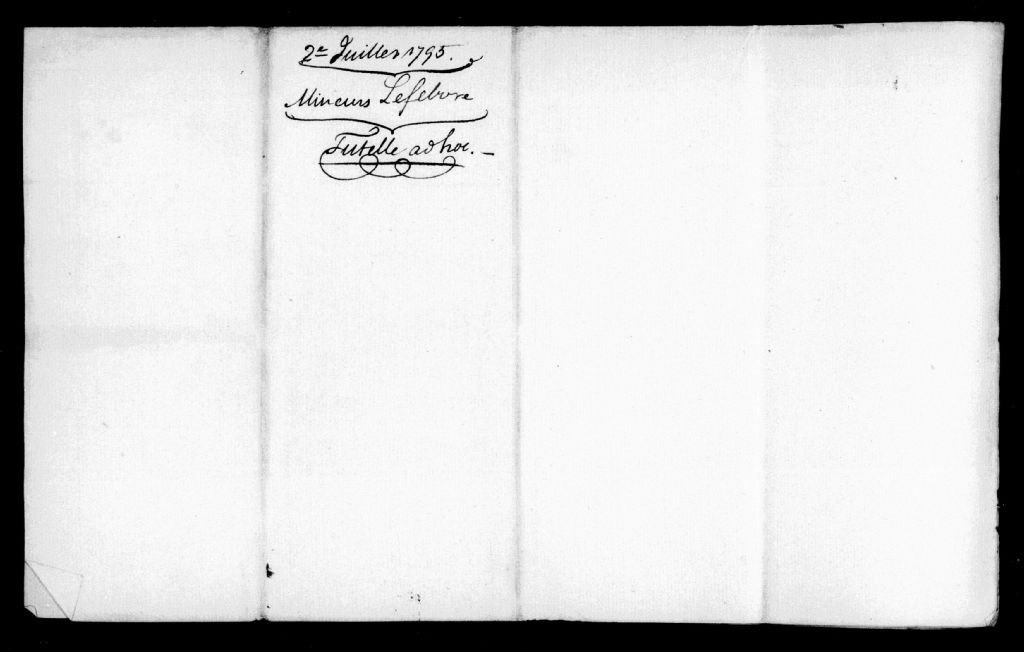 2e Juillet 1795.
Mineurs Lefebvre
Tutelle ad hoc. —